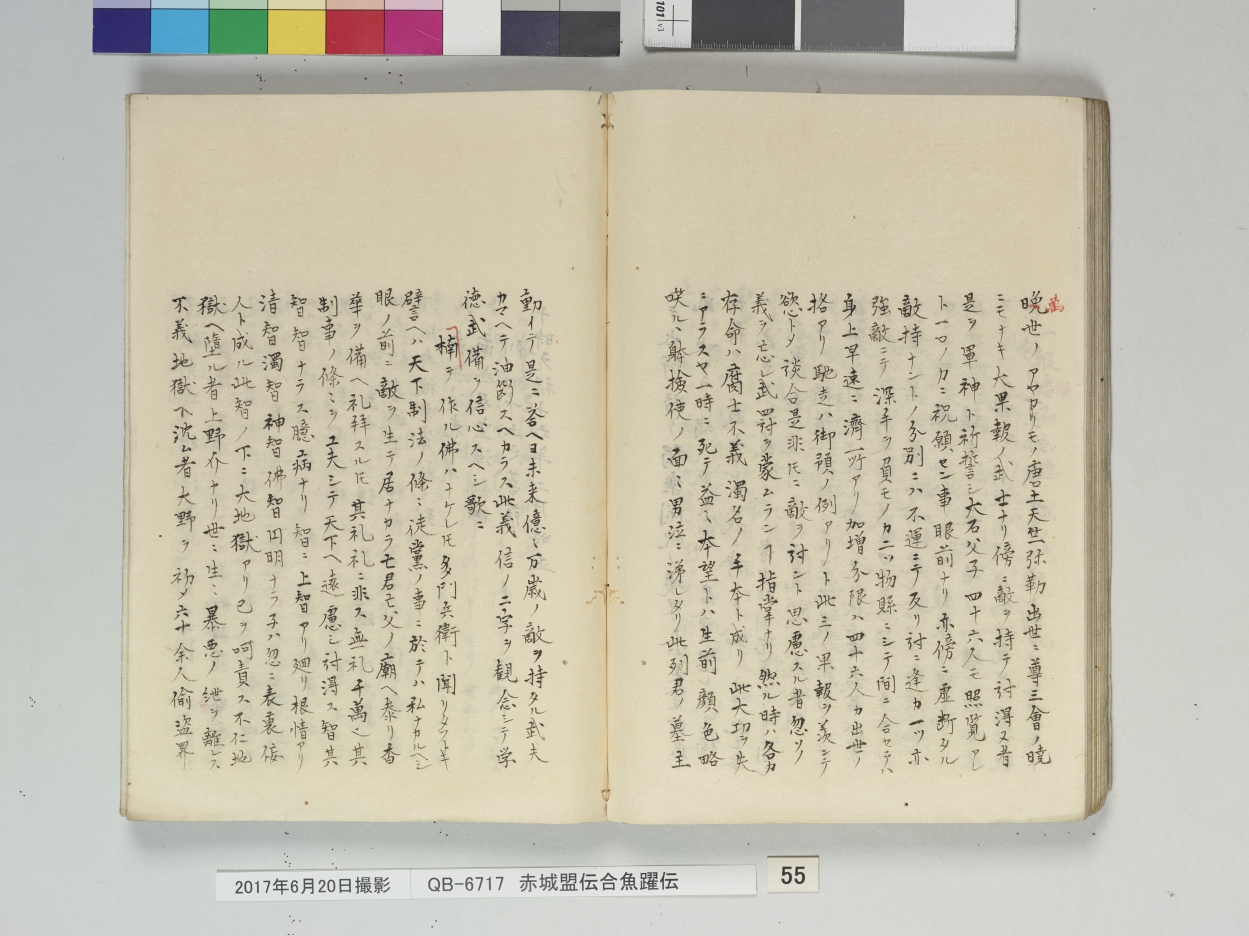 萬
晩世ノアヤカリモノ唐土天竺弥勒出世ニ尊三會ノ暁
ニモナキ大果報ノ武士ナリ傍ニ敵ヲ持テ討得ヌ者
是ヲ軍神ト祈誓シ大石父子四十六人モ照覧アレ
ト一口ノカニ祝願セン事眼前ナリ亦傍ニ虚断タル
敵持ナントノ分別ニハ不運ニテ反リ討ニ逢カ一ツ亦
強敵ニテ深手ヲ負モノカニツ物縣ニシテ間ニ合セテハ
身上早速ニ濟一所アリ加増分限ハ四十六人カ出世ノ
格アリ馳走ハ御預ノ例アリノト此三ノ果報ヲ羨シテ
慾トメ談合是非ニ敵ヲ討ント思慮スル者忽ソノ
義ヲ忘レ武四討ヲ蒙ムラン指掌ナリ然ル時ハ各カ
存命ハ腐士不義濁名ノ手本ト成リ此大功ヲ失
ニアラスヤ一時ニ死テ益ミ本望トハ生前ノ顔色略
咲ル躰検使ノ面ミ男泣ニ涕シタリ此列君ノ墓主
動イテ是ニ答ヘヨ未来億ミ万歳ノ敵ヲ持タル武夫
カマヘテ油断スヘカラス此義信ノ二字ヲ観念シテ学
徳武備ヲ信心スヘシ歌ニ
楠ニテ作ル佛ハナケレ多門兵衛ト聞リタトキ
譬ヘハ天下制法ノ條ミ徒黨ノ事ニ於テハ私ナカルヘシ
眼ノ前ニ敵ヲ生テ居ナカラ亡君亡父ノ廟ヘ参リ香
華ヲ備ヘ礼拜スル其礼礼ニ非ス無礼千萬也其
制事ノ條ミヲ工夫シテ天下ヘ遠慮シ討得ス智其
智智ナラス臆病ナリ智ニ上智アリ廻リ根情アリ
清智濁智神智佛智円明ナラ子ハ忽ニ表裏侫
人ト成ル此智ノ下ニ大地獄アリ己ヲ呵責ス不仁地
獄ヘ墮ル者上野介ナリ世ミ生ミ暴悪ノ紲ヲ離レス
不義地獄ヘ沈ム者大野ヲ初メ六十余人偷盗界
2017年6月20日撮影
QB-6717 赤城盟伝合魚躍伝
55